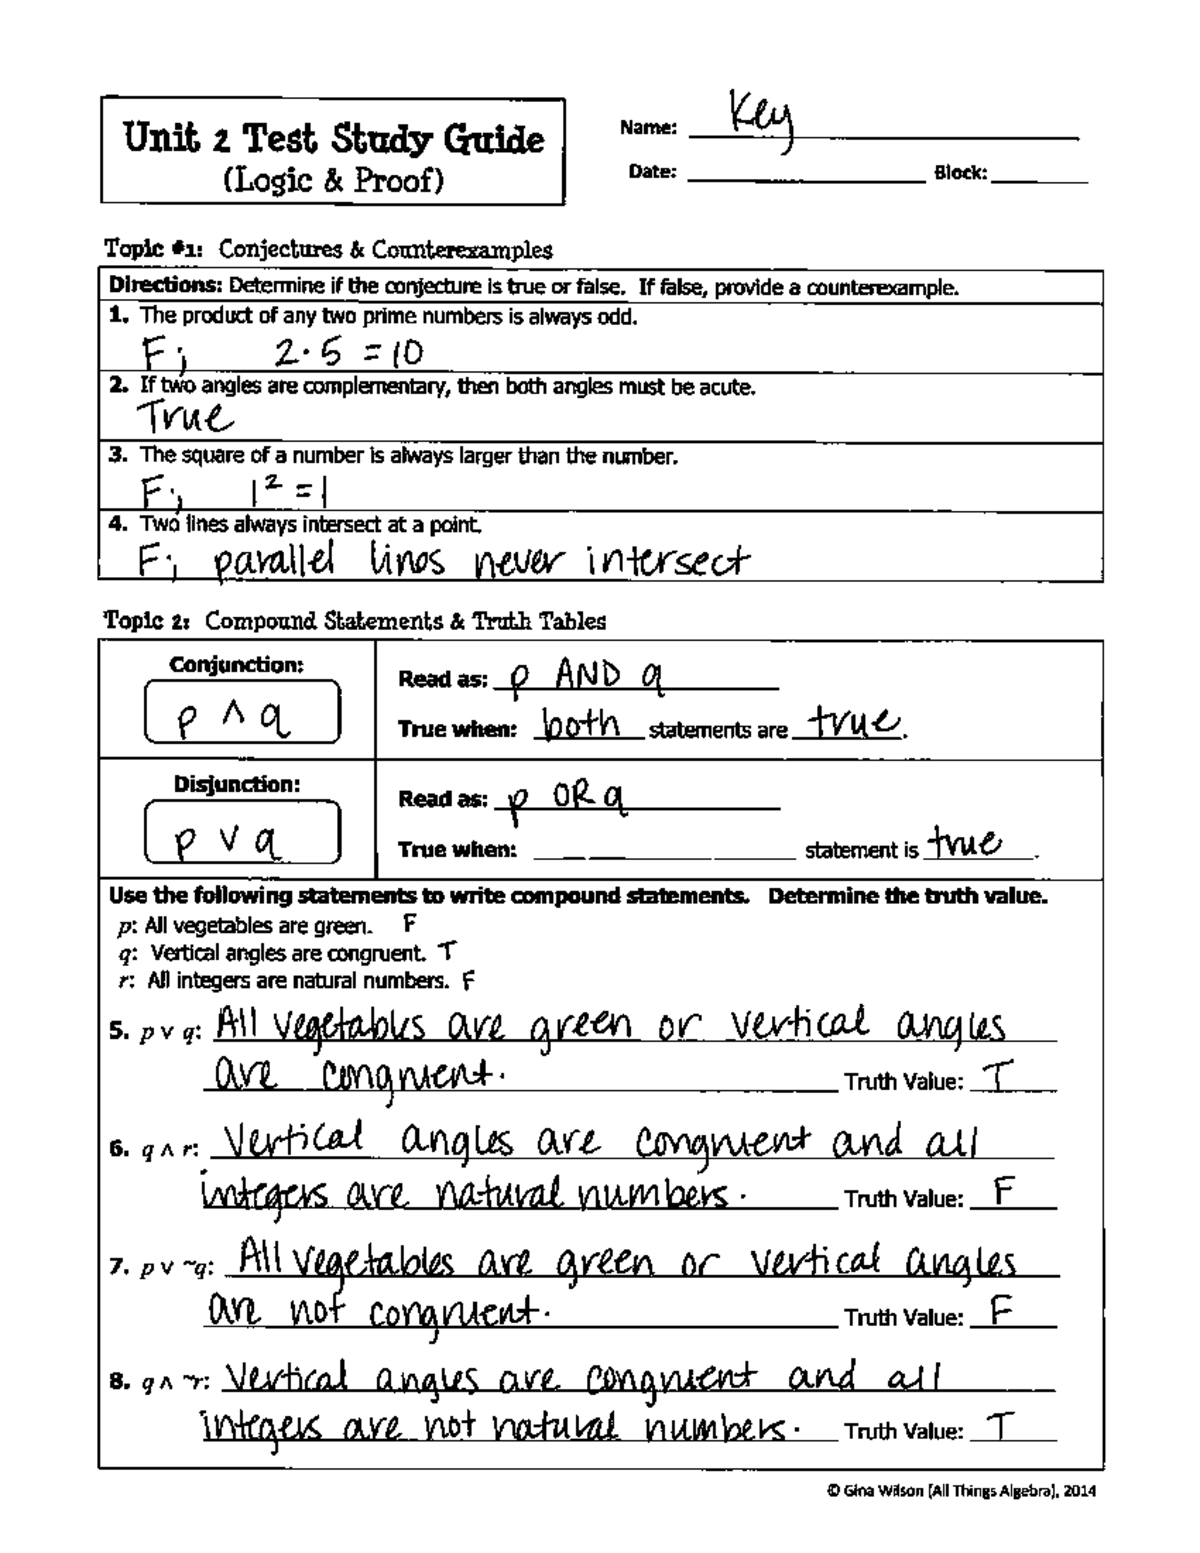 Unit 2 Test Study Guide
(Logic & Proof)
Name: Key
Date: Block:
Topic #1: Conjectures & Counterexamples
Directions: Determine if the conjecture is true or false. If false, provide a counterexample.
1. The product of any two prime numbers is always odd.
F; 2·5 = 10
2. If two angles are complementary, then both angles must be acute.
True
3. The square of a number is always larger than the number.
F; 1² = 1
4. Two lines always intersect at a point.
F; parallel lines never intersect
Topic 2: Compound Statements & Truth Tables
Conjunction:
p ∧ q
Read as: p AND q
True when: both statements are true.
Disjunction:
p ∨ q
Read as: p OR q
True when: statement is true.
Use the following statements to write compound statements. Determine the truth value.
p: All vegetables are green. F
q: Vertical angles are congruent. T
r: All integers are natural numbers. F
5. p ∨ q: All vegetables are green or vertical angles
are congruent. Truth Value: T
6. q ∧ r: Vertical angles are congruent and all
integers are natural numbers. Truth Value: F
7. p ∨ ~q: All vegetables are green or vertical angles
are not congruent. Truth Value: F
8. q ∧ ~r: Vertical angles are congruent and all
integers are not natural numbers. Truth Value: T
© Gina Wilson (All Things Algebra), 2014